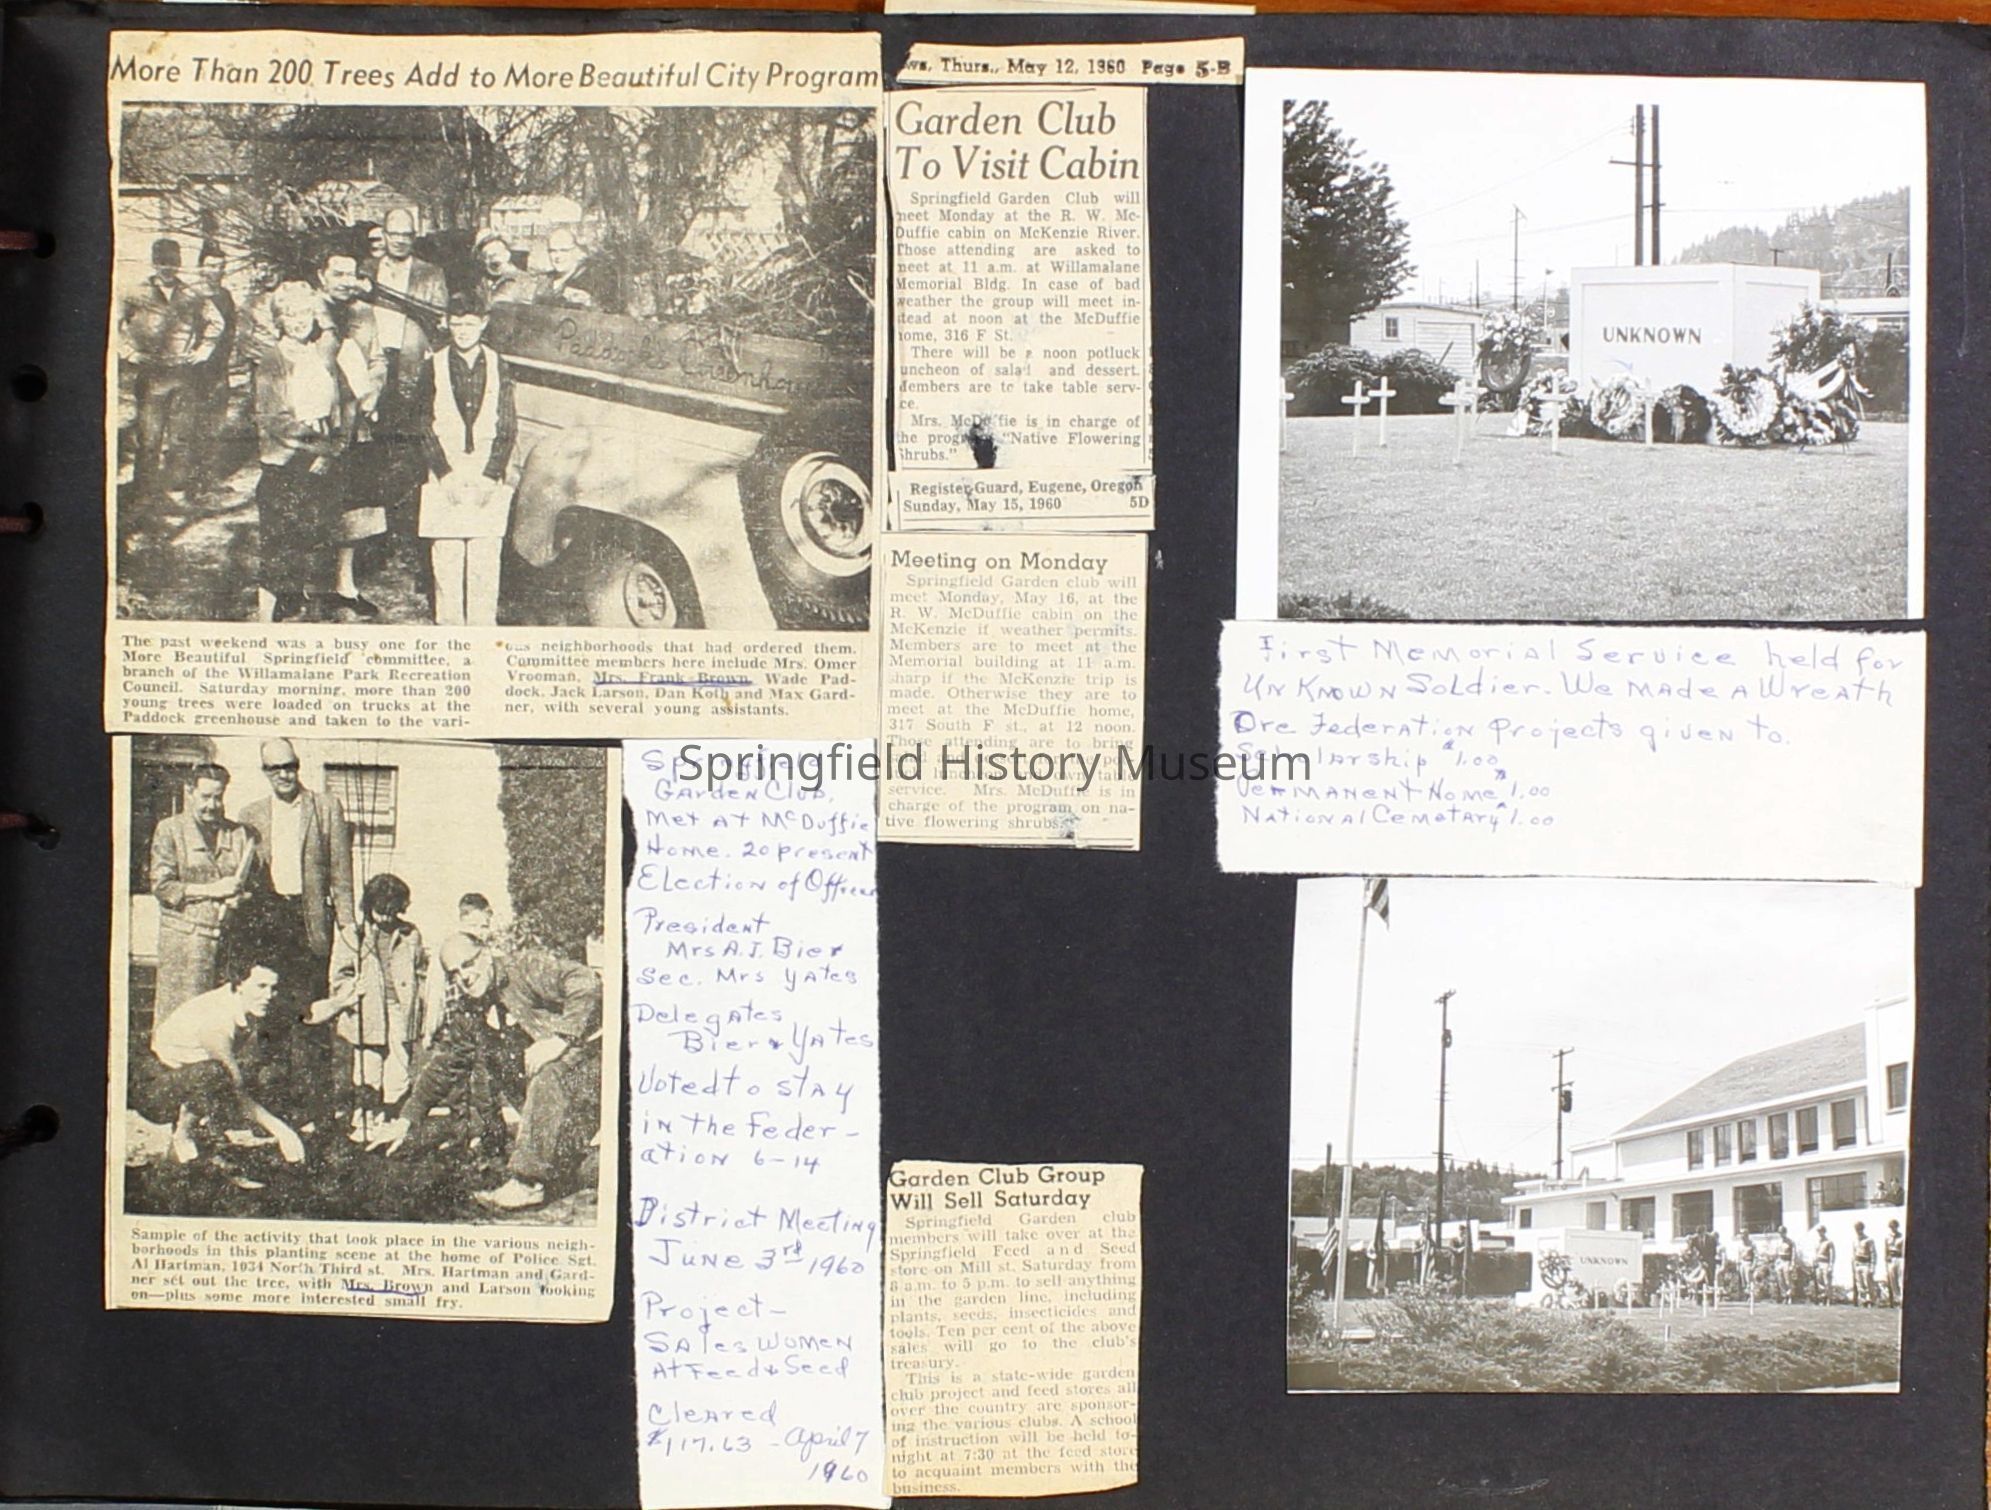 More Than 200 Trees Add to More Beautiful City Program
Paddock's Greenhouse
The past weekend was a busy one for the
More Beautiful Springfield committee, a
branch of the Willamalane Park Recreation
Council. Saturday morning, more than 200
young trees were loaded on trucks at the
Paddock greenhouse and taken to the vari-
ous neighborhoods that had ordered them.
Committee members here include Mrs. Omer
Vrooman, Mrs. Frank Brown, Wade Pad-
dock, Jack Larson, Dan Koth and Max Gard-
ner, with several young assistants.
Sample of the activity that took place in the various neigh-
borhoods in this planting scene at the home of Police Sgt.
Al Hartman, 1034 North Third st. Mrs. Hartman and Gard-
ner set out the tree, with Mrs. Brown and Larson looking
on—plus some more interested small fry.
Springfield
Garden Club.
Met At McDuffie
Home. 20 present
Election of Officers
President
Mrs A.J. Bier
Sec. Mrs Yates
Delegates
Bier & Yates
Voted to stay
in the Feder-
ation 6-14
District Meeting
June 3rd 1960
Project-
Sales women
At Feed & Seed
Cleared
$117.63 - April 7
1960
ws, Thurs., May 12, 1960 Page 5-B
Garden Club
To Visit Cabin
Springfield Garden Club will
meet Monday at the R. W. Mc-
Duffie cabin on McKenzie River.
Those attending are asked to
meet at 11 a.m. at Willamalane
Memorial Bldg. In case of bad
weather the group will meet in-
stead at noon at the McDuffie
home, 316 F St.
There will be a noon potluck
luncheon of salad and dessert.
Members are to take table serv-
ice.
Mrs. McDuffie is in charge of
the program "Native Flowering
Shrubs."
Register-Guard, Eugene, Oregon
Sunday, May 15, 1960 5D
Meeting on Monday
Springfield Garden club will
meet Monday, May 16, at the
R. W. McDuffie cabin on the
McKenzie if weather permits.
Members are to meet at the
Memorial building at 11 a.m.
sharp if the McKenzie trip is
made. Otherwise they are to
meet at the McDuffie home,
317 South F st., at 12 noon.
Those attending are to bring
service. Mrs. McDuffie is in
charge of the program on na-
tive flowering shrubs.
Garden Club Group
Will Sell Saturday
Springfield Garden club
members will take over at the
Springfield Feed and Seed
store on Mill st. Saturday from
8 a.m. to 5 p.m. to sell anything
in the garden line, including
plants, seeds, insecticides and
tools. Ten per cent of the above
sales will go to the club's
treasury.
This is a state-wide garden
club project and feed stores all
over the country are sponsor-
ing the various clubs. A school
of instruction will be held to-
night at 7:30 at the feed store
to acquaint members with the
business.
UNKNOWN
First Memorial Service held for
Unknown Soldier. We made a Wreath
Ore Federation Projects given to.
Scholarship $1.00
Permanent Home $1.00
National Cemetary $1.00
UNKNOWN
Springfield History Museum